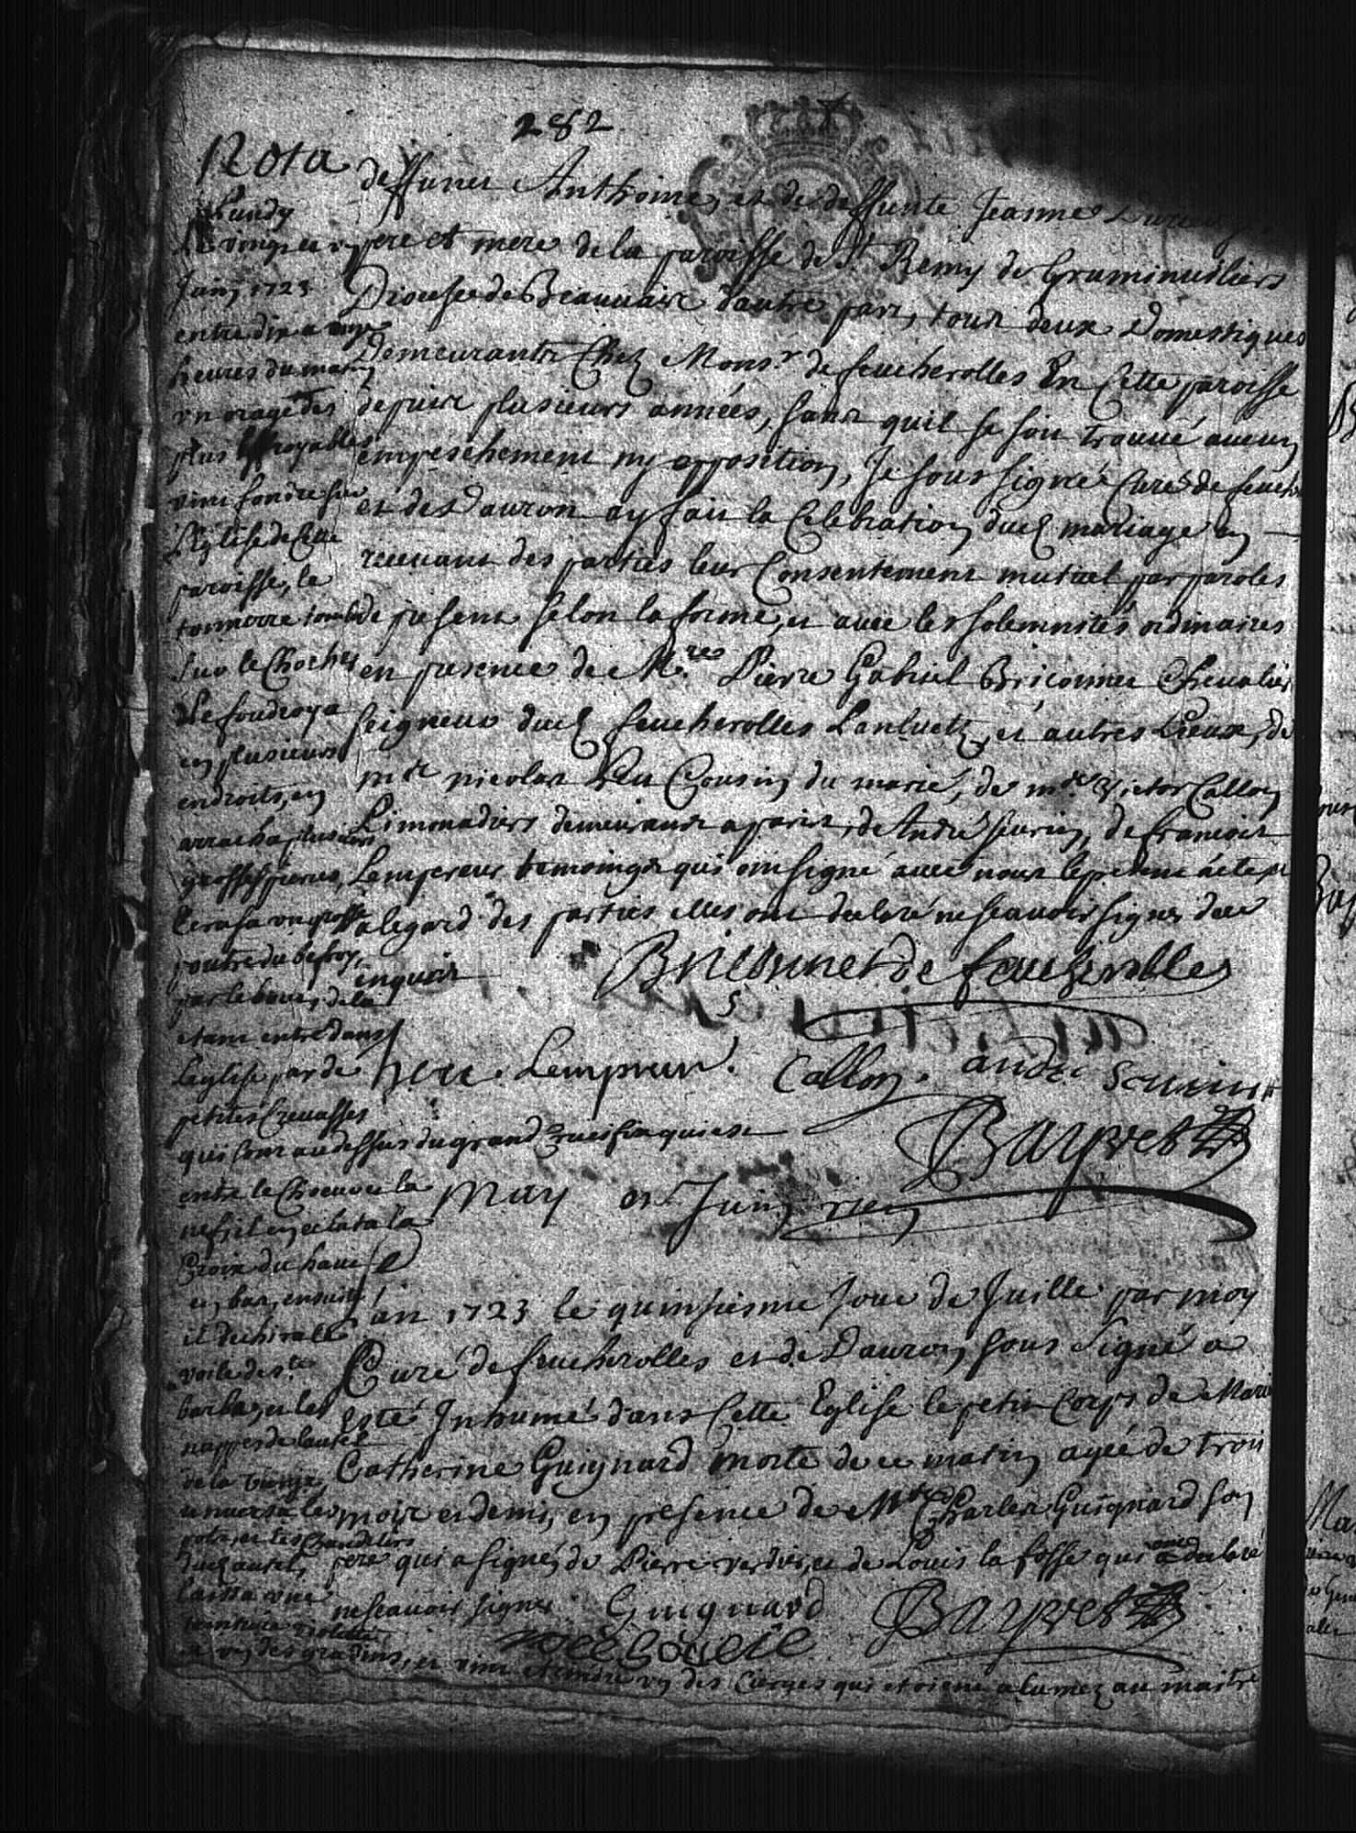 282
Nota
Lundy
vingt et un
Juin 1723
entre dix a onze
heures du matin
un orage des
plus effroyables
vint fondre sur
L'Eglise de cette
paroisse, le
tonnerre tomba
sur le Clocher
Le foudroya
en plusieurs
endroits, en
arracha plusieurs
grosses pierres,
Ecrasa un grosse
poutre du befroy,
par le bout, de la
etant entré dans
L'eglise par de
petites Crevasses
qui sont au dessus du grand Crucifix qui est
entre le Choeur et la
nef il en eclata la
Croix du haut
en bas, ensuite
il dechira le
voile de ste
barbe, et les
nappes de l'autel
de la vierge
renversa les
pots, et les Chandeliers
dud autel,
laissa une
teinture violette
a un des gradins, et vint eteindre un des Cierges qui etoient alumez au maitre
deffunct Anthoine, et de deffunte Jeanne
pere et mere de la paroisse de St Remy de Gruminuilliers
Diocese de Beauuais d'autre part, tous deux Domestiques
Demeurants Chez Monsr de feucherolles En Cette paroisse
depuis plusieurs années, sans quil se soit trouué aucun
empeschement ny opposition, Je soussigné Curé de feuch
et de Dauron ay fait la Celebration dud mariage en
receuant des parties leur Consentement mutuel par paroles
de present selon la forme, et auec les solemnités ordinaires
en presence de Mre Pierre Gabriel Briconnet Cheualier
seigneur dud feucherolles Lanluetz, et autres Lieux, de
nicolas Cousin du marié, de Victor Callon
Limonadier demeurant a paris, de André seurin, de francois
Lempereur temoings qui ont signé auec nous le present acte et
a legard des parties elles ont declaré ne scauoir signer de ce
enquis
Briconnet de feucherolles
Lempreur. Callon. andré seurin
Bayvet
May et Juin rien
L'an 1723 le quinsiesme Jour de Juille par moy
Curé de feucherolles et de Dauron sous signé a
esté Inhumé dans Cette Eglise le petit Corps de Marie
Catherine Guignard morte de ce matin agée de trois
mois et demi, en presence de Charles Guignard son
pere qui a signé, de Pierre verdier, et de Louis la fosse qui ont declaré
ne scauoir signer Guignard Bayvet